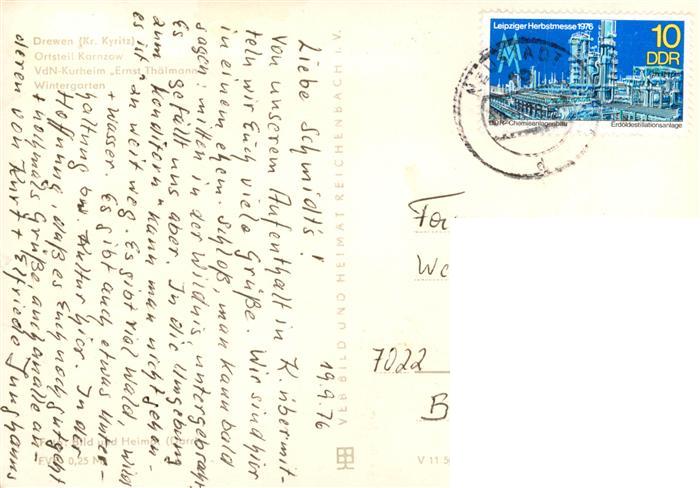 Drewen (Kr. Kyritz)
Ortsteil Karnzow
VdN-Kurheim „Ernst Thälmann
Wintergarten
19.9.76
Liebe Schmidt's!
Von unserem Aufenthalt in K. übermit-
teln wir Euch viele Grüße. Wir sind hier
in einem ehem. Schloß, man kann bald
sagen: mitten in der Wildnis untergebracht
Es gefällt uns aber. In die Umgebung
zum Konditern kann man nicht gehen -
es ist zu weit weg. Es gibt viel Wald, Wind
+ Wasser. Es gibt auch etwas Unter-
haltung bzw. Kultur hier. In der
Hoffnung, daß es Euch noch gut geht
+ nochmals Grüße, auch an alle an-
deren von Kurt + Elfriede Junghans
VEB BILD UND HEIMAT REICHENBACH i. V.
Foto: Bild und Heimat
EVP 0,25 M
V 11 5
Leipziger Herbstmesse 1976
10
DDR
DDR-Chemieanlagenbau
Erdöldestillationsanlage
7022